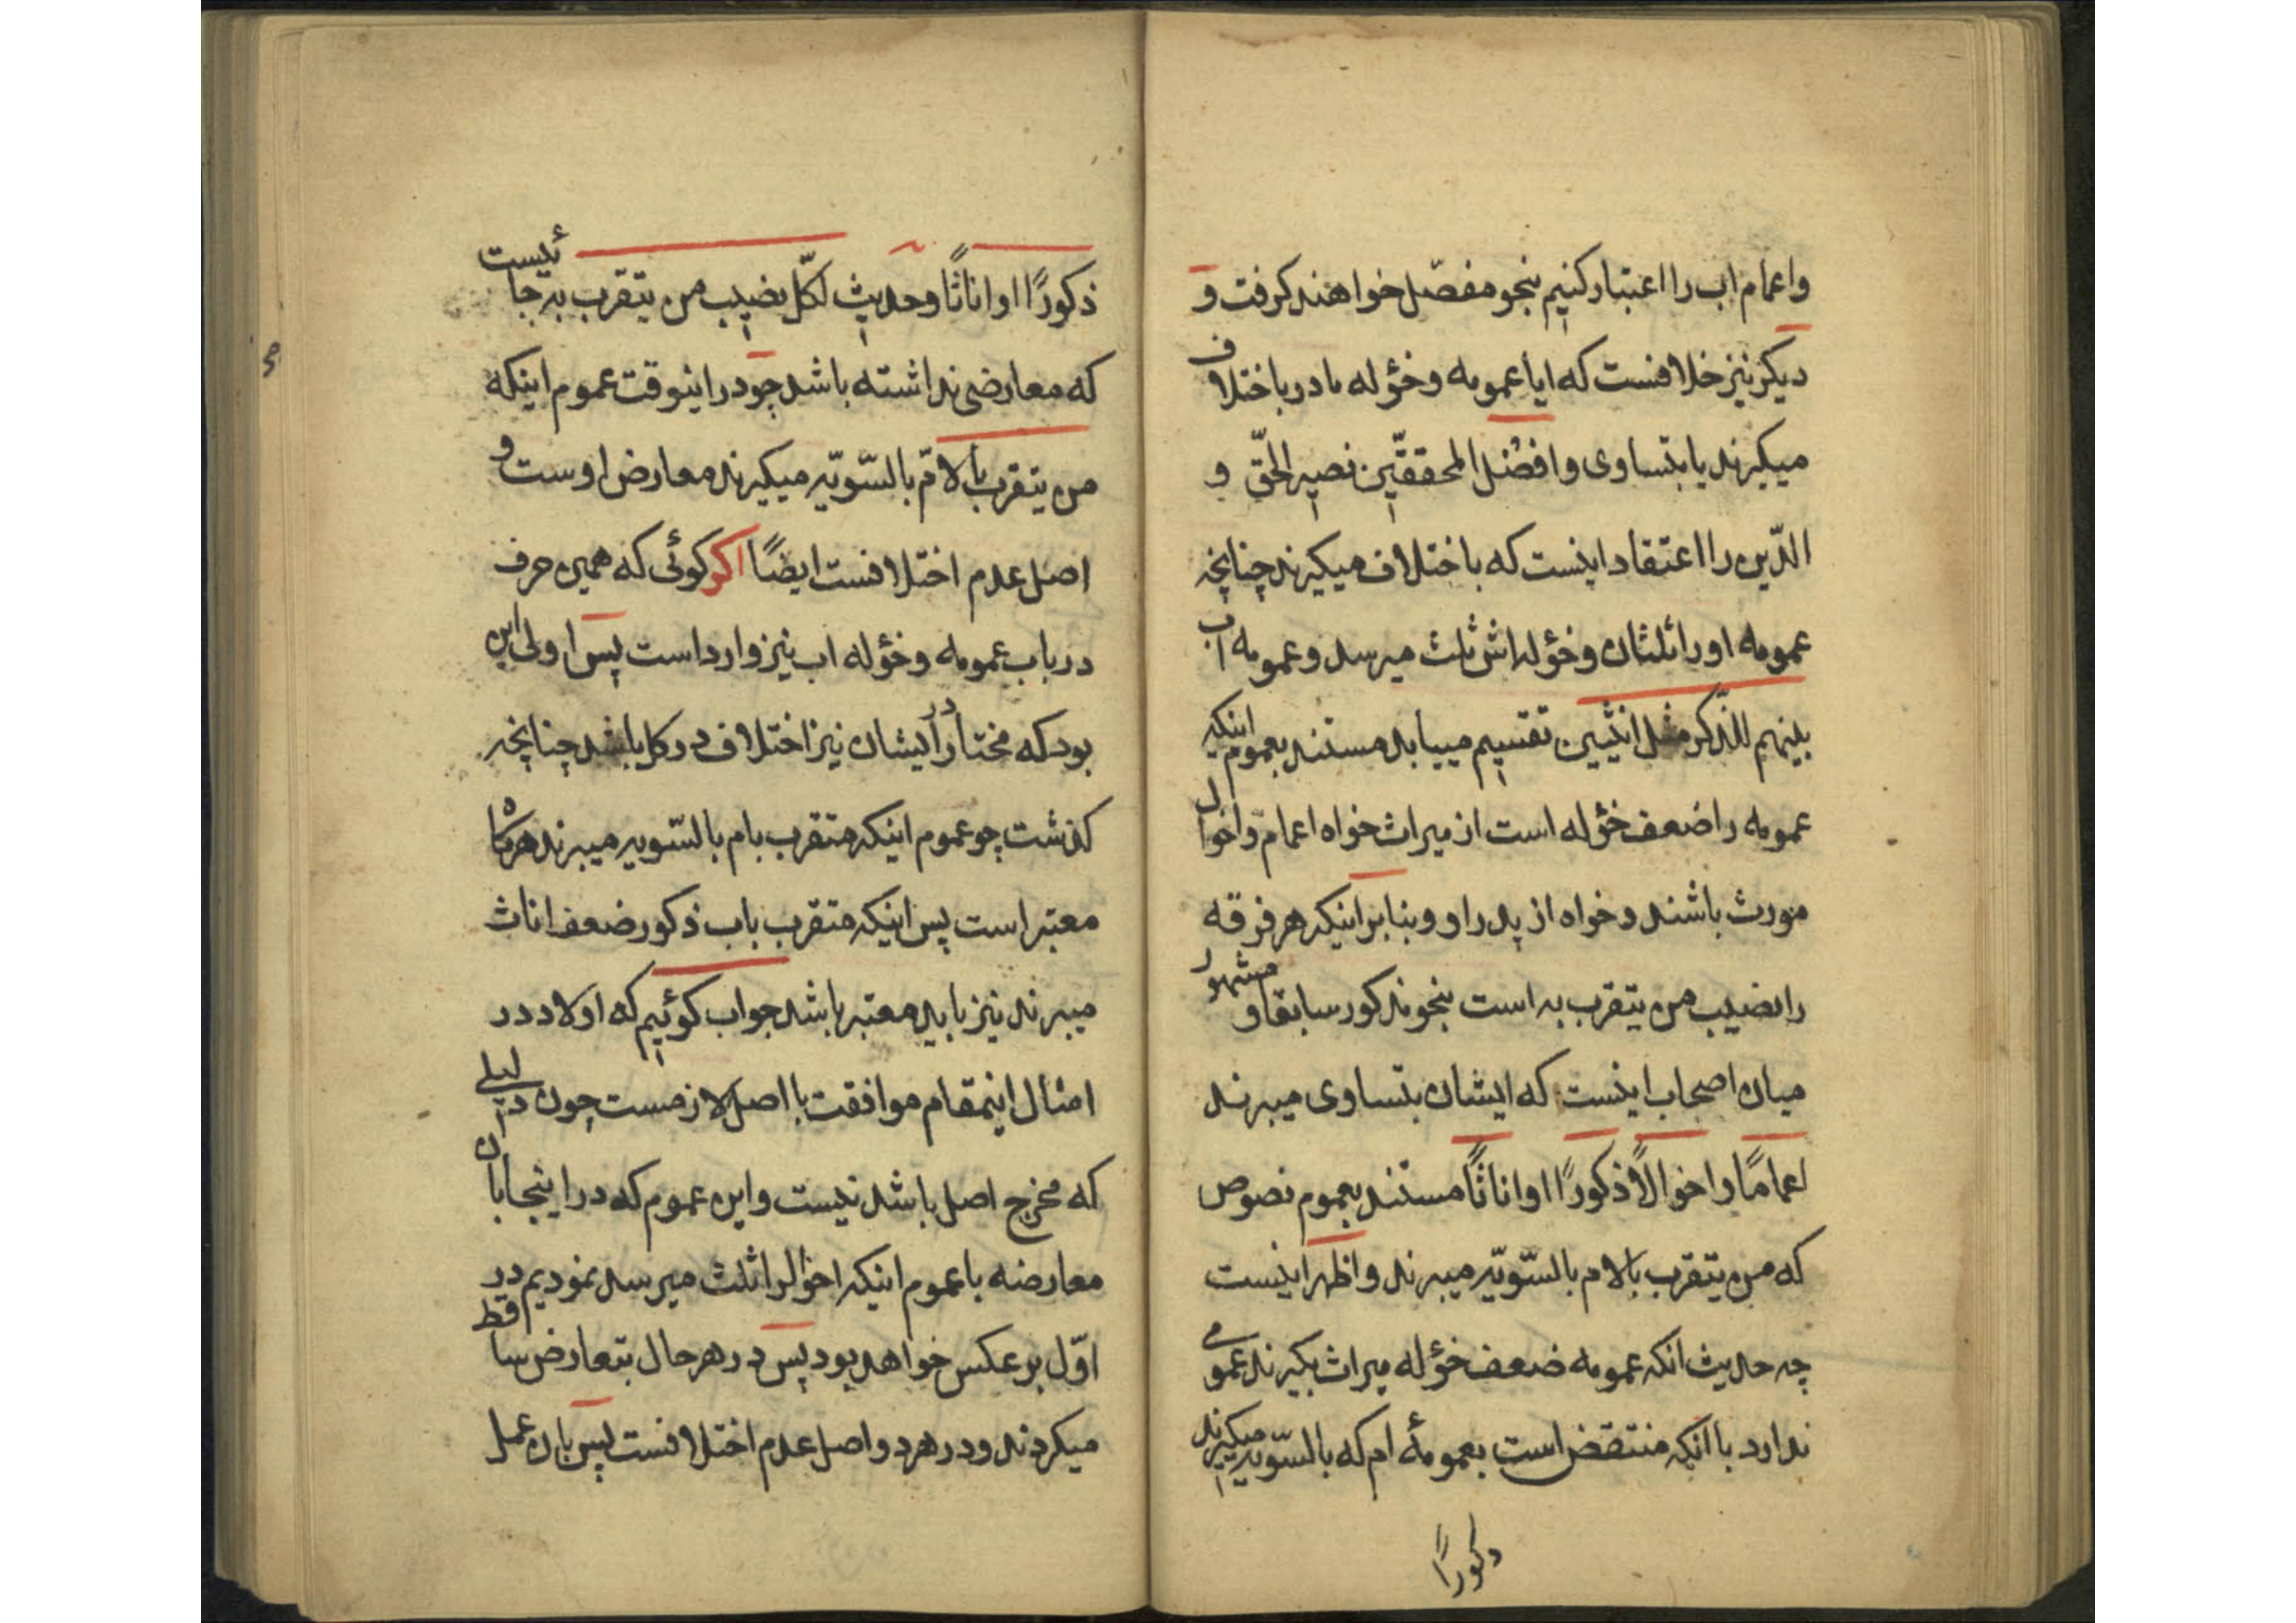 واعمام اب را اعتبار کنیم بنجو مفصّل خواهند کرفت و
دیکر نیز خلافست که ایا عمومه وخؤله مادر باختلاف
میکیرند یا بتساوی وافضل المحققین نصیر الحقّ و
الدّین را اعتقاد اینست که باختلاف میکیرند چنانچه
عمومه او را ثلثان وخؤله اش ثلث میرسد وعمومه اب
بینهم للذّکر مثل انثیین تقسیم مییابد مستند بعموم اینکه
عمومه را ضعف خؤله است از میراث خواه اعمام واخوال
مورث باشند و خواه از پدر او و بنابر اینکه هر فرقه
را نصیب من یتقرب به است بنحو مذکور سابقا و مشهور
میان اصحاب اینست که ایشان بتساوی میبرند
اعماما واخوالاً ذکورًا او اناثًا مستند بعموم نصوص
که من یتقرب بالام بالسّویّه میبرند واظهر اینست
چه حدیث انکه عمومه ضعف خؤله میراث بکیرند عمومی
ندارد با انکه منتقض است بعمومهٔ ام که بالسّویّه میکیرند
ذکورًا
ذکورًا او اناثًا وحدیث لکلّ نصیب من یتقرب به جائیست
که معارضی نداشته باشد چو در اینوقت عموم اینکه
من یتقرب بالامّ بالسّویّه میکیرند معارض اوست و
اصل عدم اختلافست ایضًا اکر کوئی که همین حرف
در باب عمومه وخؤله اب نیز وارد است پس اولی این
بود که مختار در ایشان نیز اختلاف در کل باشد چنانچه
کذشت چو عموم اینکه متقرب بام بالسّویه میبرند هر کاه
معتبر است پس اینکه متقرب باب ذکور ضعف اناث
میبرند نیز باید معتبر باشد جواب کوئیم که اولا در
امثال اینمقام موافقت با اصل لازمست چون دلیلی
که مخرج اصل باشد نیست واین عموم که در اینجا بان
معارضه با عموم اینکه اخؤال را ثلث میرسد نمودیم در
اوّل بر عکس خواهد بود پس در هر حال بتعارض ساقط
میکردند ودر هر دو اصل عدم اختلافست پس بان عمل